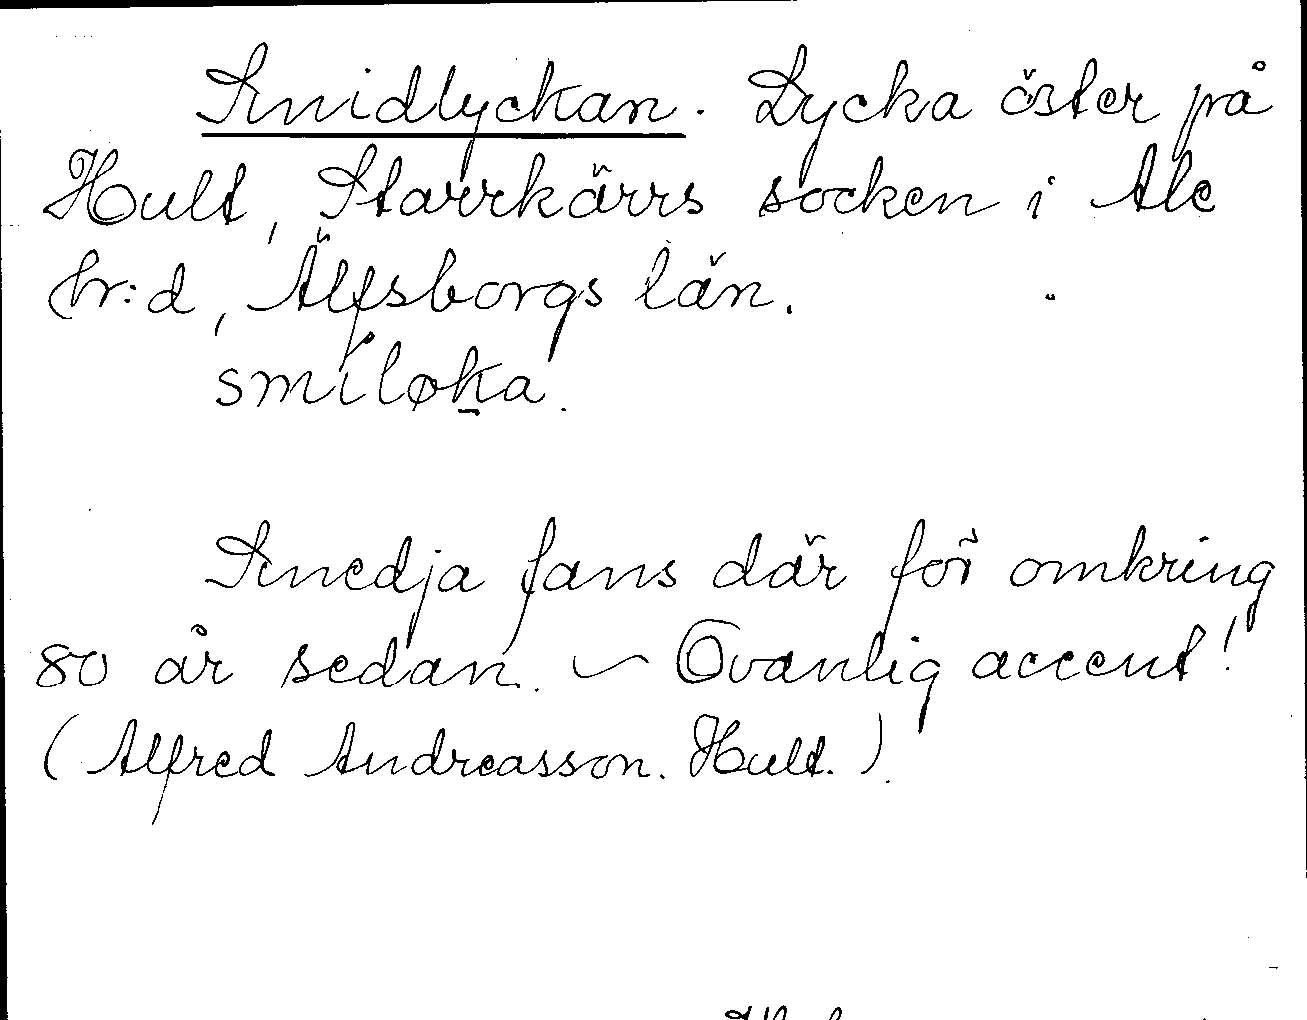 Smidlyckan. Lycka öster på
Hult, Starrkärrs socken i Ale
hr:d, Älfsborgs län.
smíløḵa.
Smedja fans där för omkring
80 år sedan. ~ Ovanlig accent!
(Alfred Andreasson. Hult.)